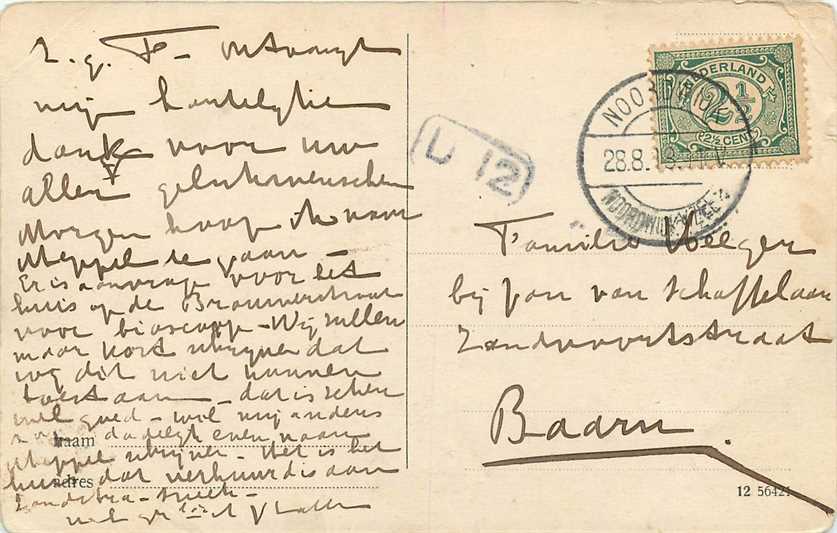 ontvangt
mijn hartelijke
dank voor uw
aller gelukwenschen
Morgen hoop ik naar
Meppel te gaan -
Er is aanvraag voor het
huis op de Brouwerstraat
voor bioscoop - Wij zullen
maar vort schrijven dat
wij dit niet kunnen
toestaan - dat is
goed - wil mij anders
dadelijk even naar
Meppel schrijven - Het is het
huis dat verhuurd is aan
Zandstra
naam
adres
L 12
NEDERLAND
2½
2½ CENT
NOORDWIJK
28.8.
NOORDWIJK A/ZEE
Familie
bij Jan van Schaffelaar
Zandvoortstraat
Baarn.
12 56421